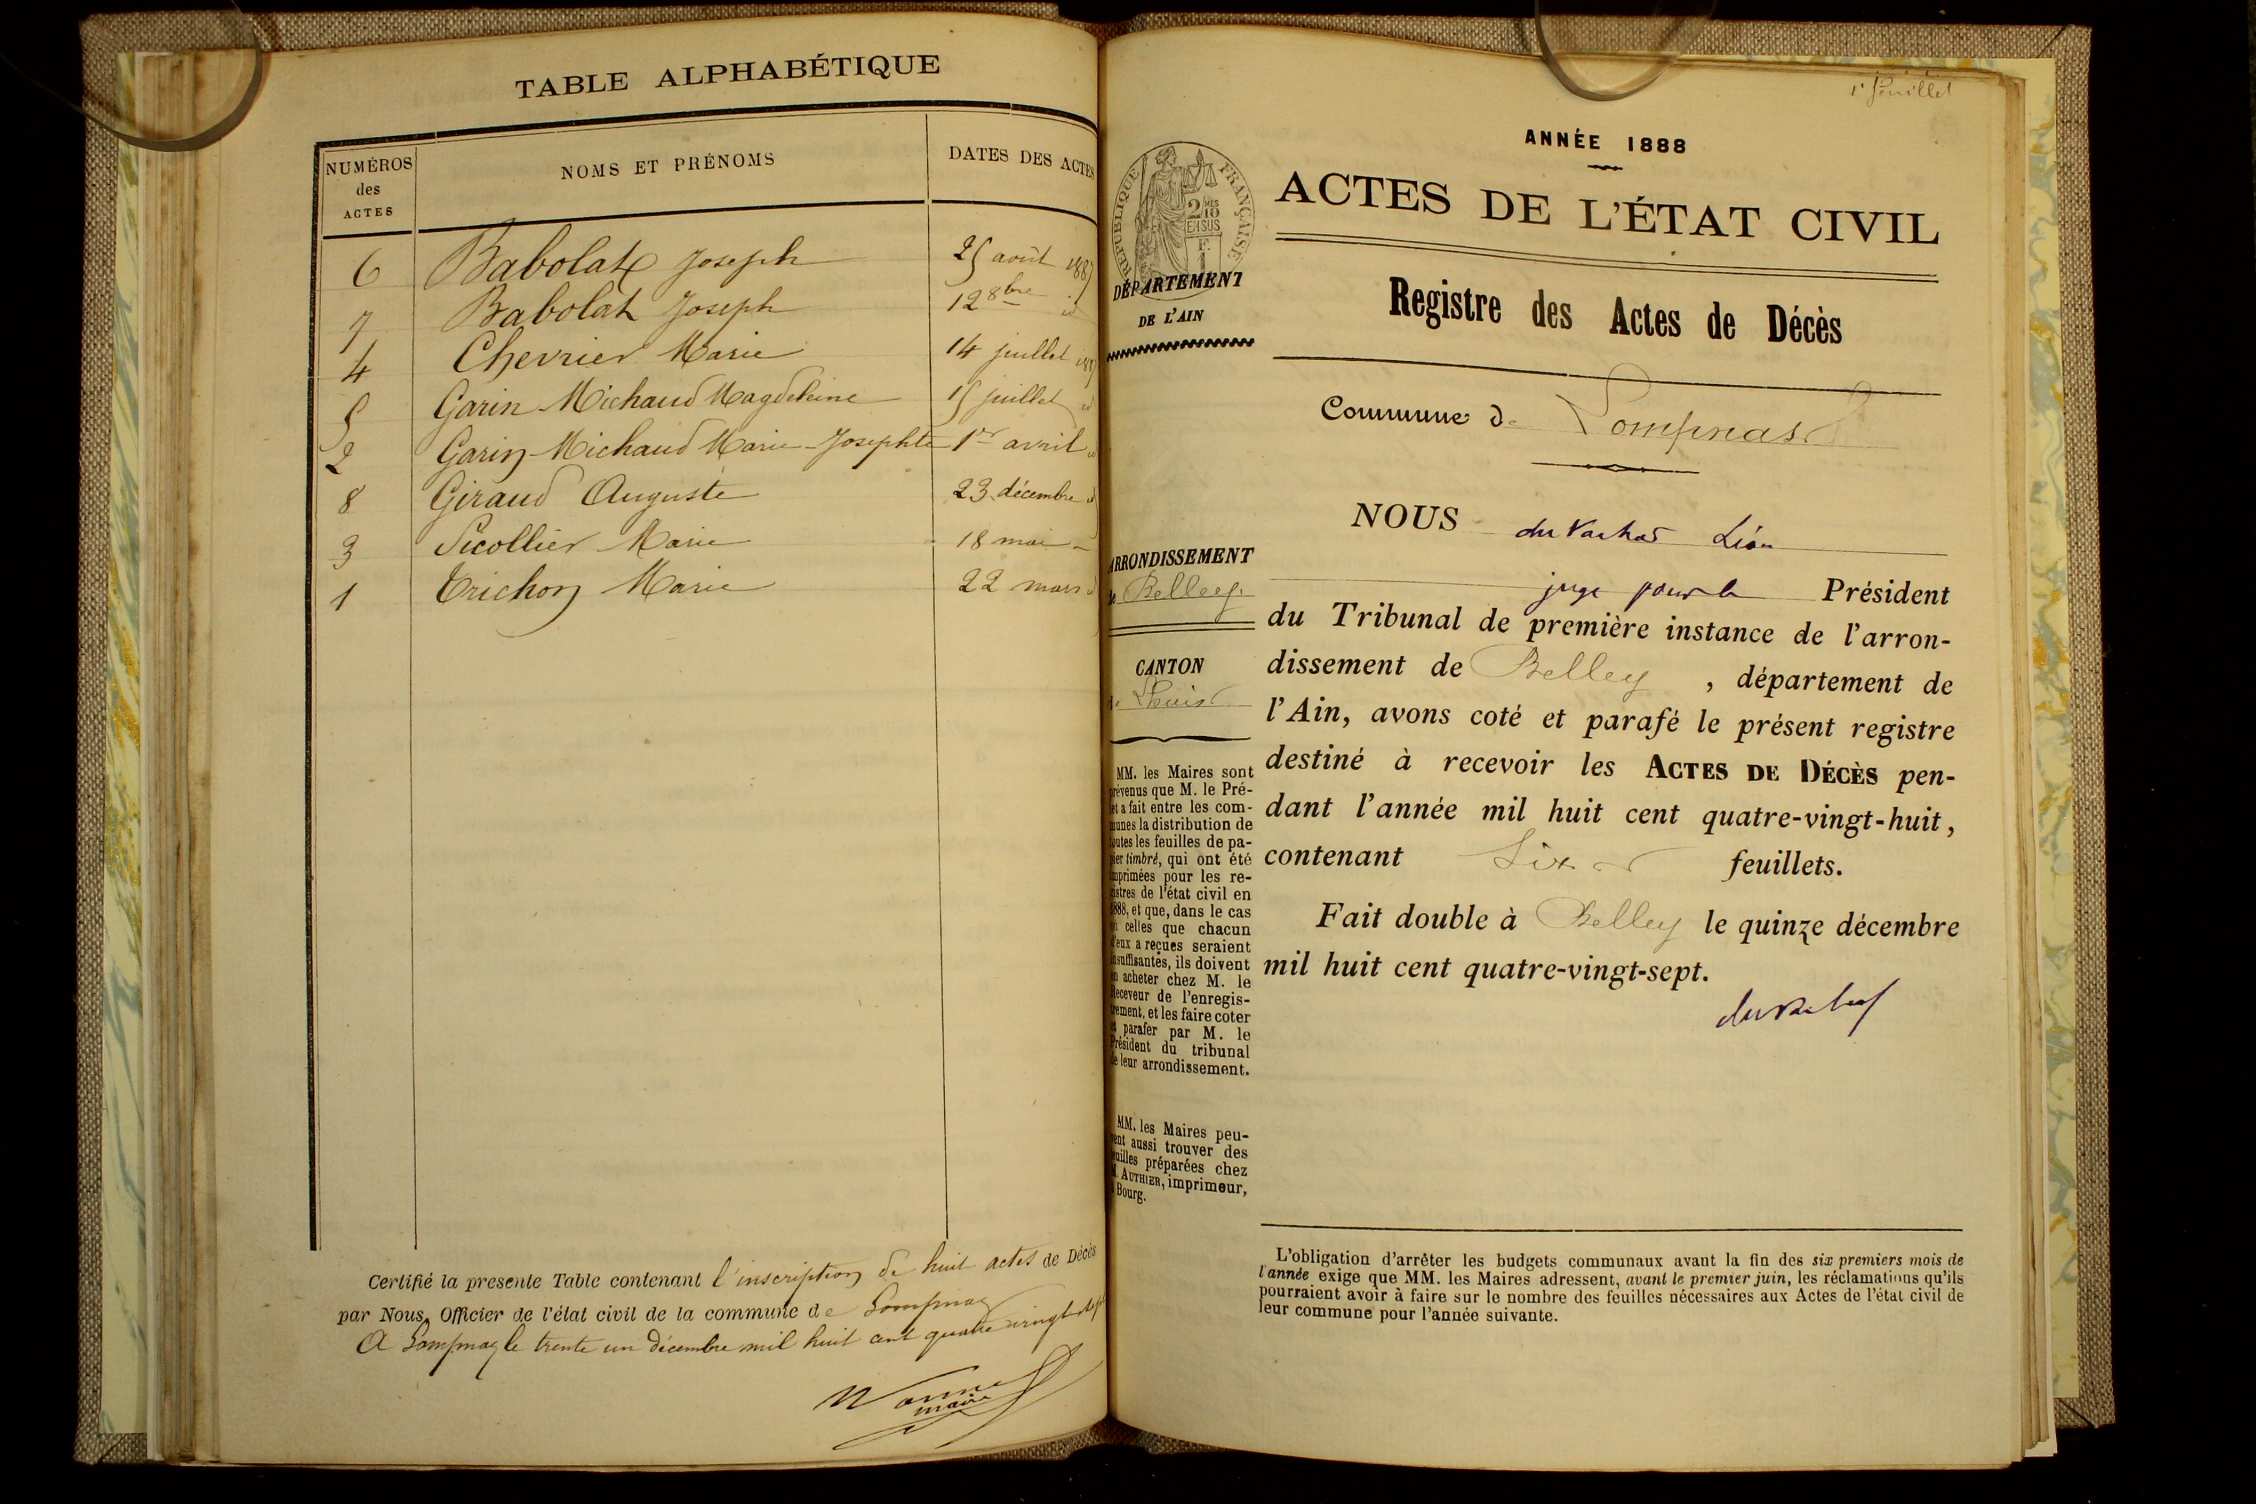 TABLE ALPHABÉTIQUE
NUMÉROS des ACTES
NOMS ET PRÉNOMS
DATES DES ACTES
6 Babolat Joseph 25 août 1887
7 Babolat Joseph 12 8bre id
4 Chevrier Marie 14 juillet 1887
5 Garin Michaud Magdeleine 15 juillet id
2 Garin-Michaud Marie-Josephte 1er avril id
8 Giraud Auguste 23 décembre id
3 Sicollier Marie 18 mai
1 Trichon Marie 22 mars id
Certifié la présente Table contenant l'inscription de huit actes de Décès
par Nous, Officier de l'état civil de la commune de Lompnas
A Lompnas le trente un décembre mil huit cent quatre vingt sept
maire
1er feuillet
ANNÉE 1888
ACTES DE L'ÉTAT CIVIL
RÉPUBLIQUE FRANÇAISE
DÉPARTEMENT
DE L'AIN
Registre des Actes de Décès
Commune de Lompnas
NOUS Léon
juge pour le Président
du Tribunal de première instance de l'arron-
dissement de Belley, département de
l'Ain, avons coté et parafé le présent registre
destiné à recevoir les ACTES DE DÉCÈS pen-
dant l'année mil huit cent quatre-vingt-huit,
contenant Six feuillets.
Fait double à Belley le quinze décembre
mil huit cent quatre-vingt-sept.
ARRONDISSEMENT
de Belley
CANTON
de Lhuis
MM. les Maires sont
prévenus que M. le Pré-
fet a fait entre les com-
munes la distribution de
toutes les feuilles de pa-
pier timbré, qui ont été
imprimées pour les re-
gistres de l'état civil en
1888, et que, dans le cas
où celles que chacun
d'eux a reçues seraient
insuffisantes, ils doivent
en acheter chez M. le
Receveur de l'enregis-
trement, et les faire coter
et parafer par M. le
Président du tribunal
de leur arrondissement.
MM. les Maires peu-
vent aussi trouver des
feuilles préparées chez
M. AUTHIER, imprimeur,
à Bourg.
L'obligation d'arrêter les budgets communaux avant la fin des six premiers mois de
l'année exige que MM. les Maires adressent, avant le premier juin, les réclamations qu'ils
pourraient avoir à faire sur le nombre des feuilles nécessaires aux Actes de l'état civil de
leur commune pour l'année suivante.